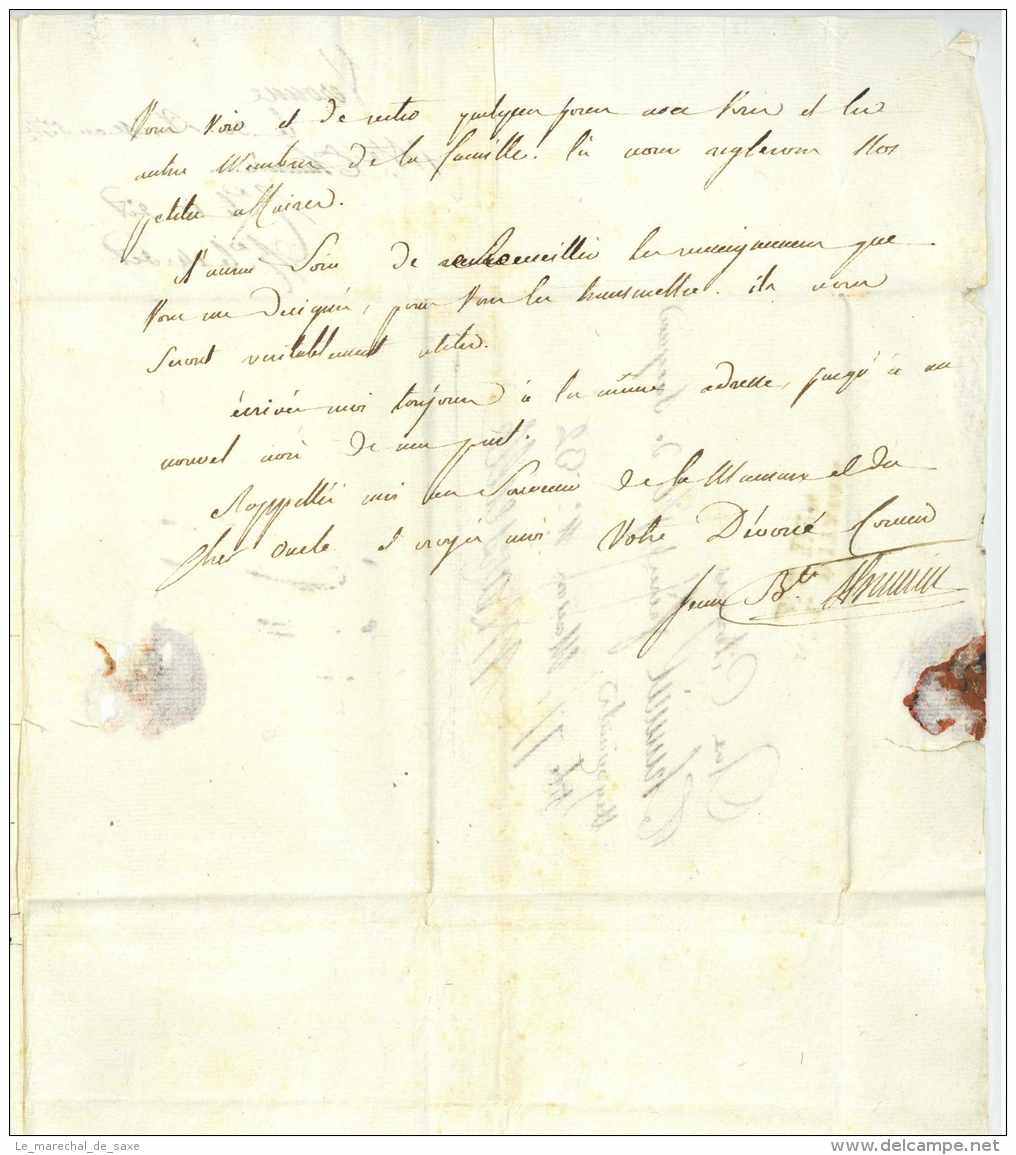 Vous Voir et de rester quelques jours avec Vous et les
autres Membres de la famille. là nous reglerons Nos
petites affaires.
J'aurai Soin de recueillir les renseignemens que
Vous me designés, pour Vous les transmettre. ils vous
Seront veritablement utiles.
écrivés moi toujours à la même adresse, jusqu'à un
nouvel avis de ma part.
Rappellés moi au Souvenir de la Maman et du
Cher Oncle et croyés moi Votre Dévoué Cousin
Jean Bte
Le_marechal_de_saxe
delcampe.net